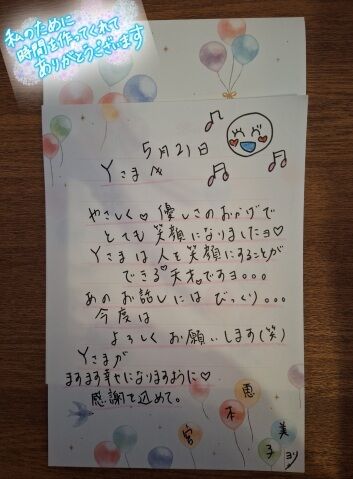 私のために
時間を作ってくれて
ありがとうございます
5月21日
Yさまへ
やさしく♡優しさのおかげで
とても笑顔になりましたョ♡
Yさまは人を笑顔にすることが
できる天才ですヨ。。。
あのお話しにはびっくり。。。
今度は
よろしくお願いします(笑)
Yさまが
ますます幸せになりますように♡
感謝を込めて。
宮木恵美子
ヨリ